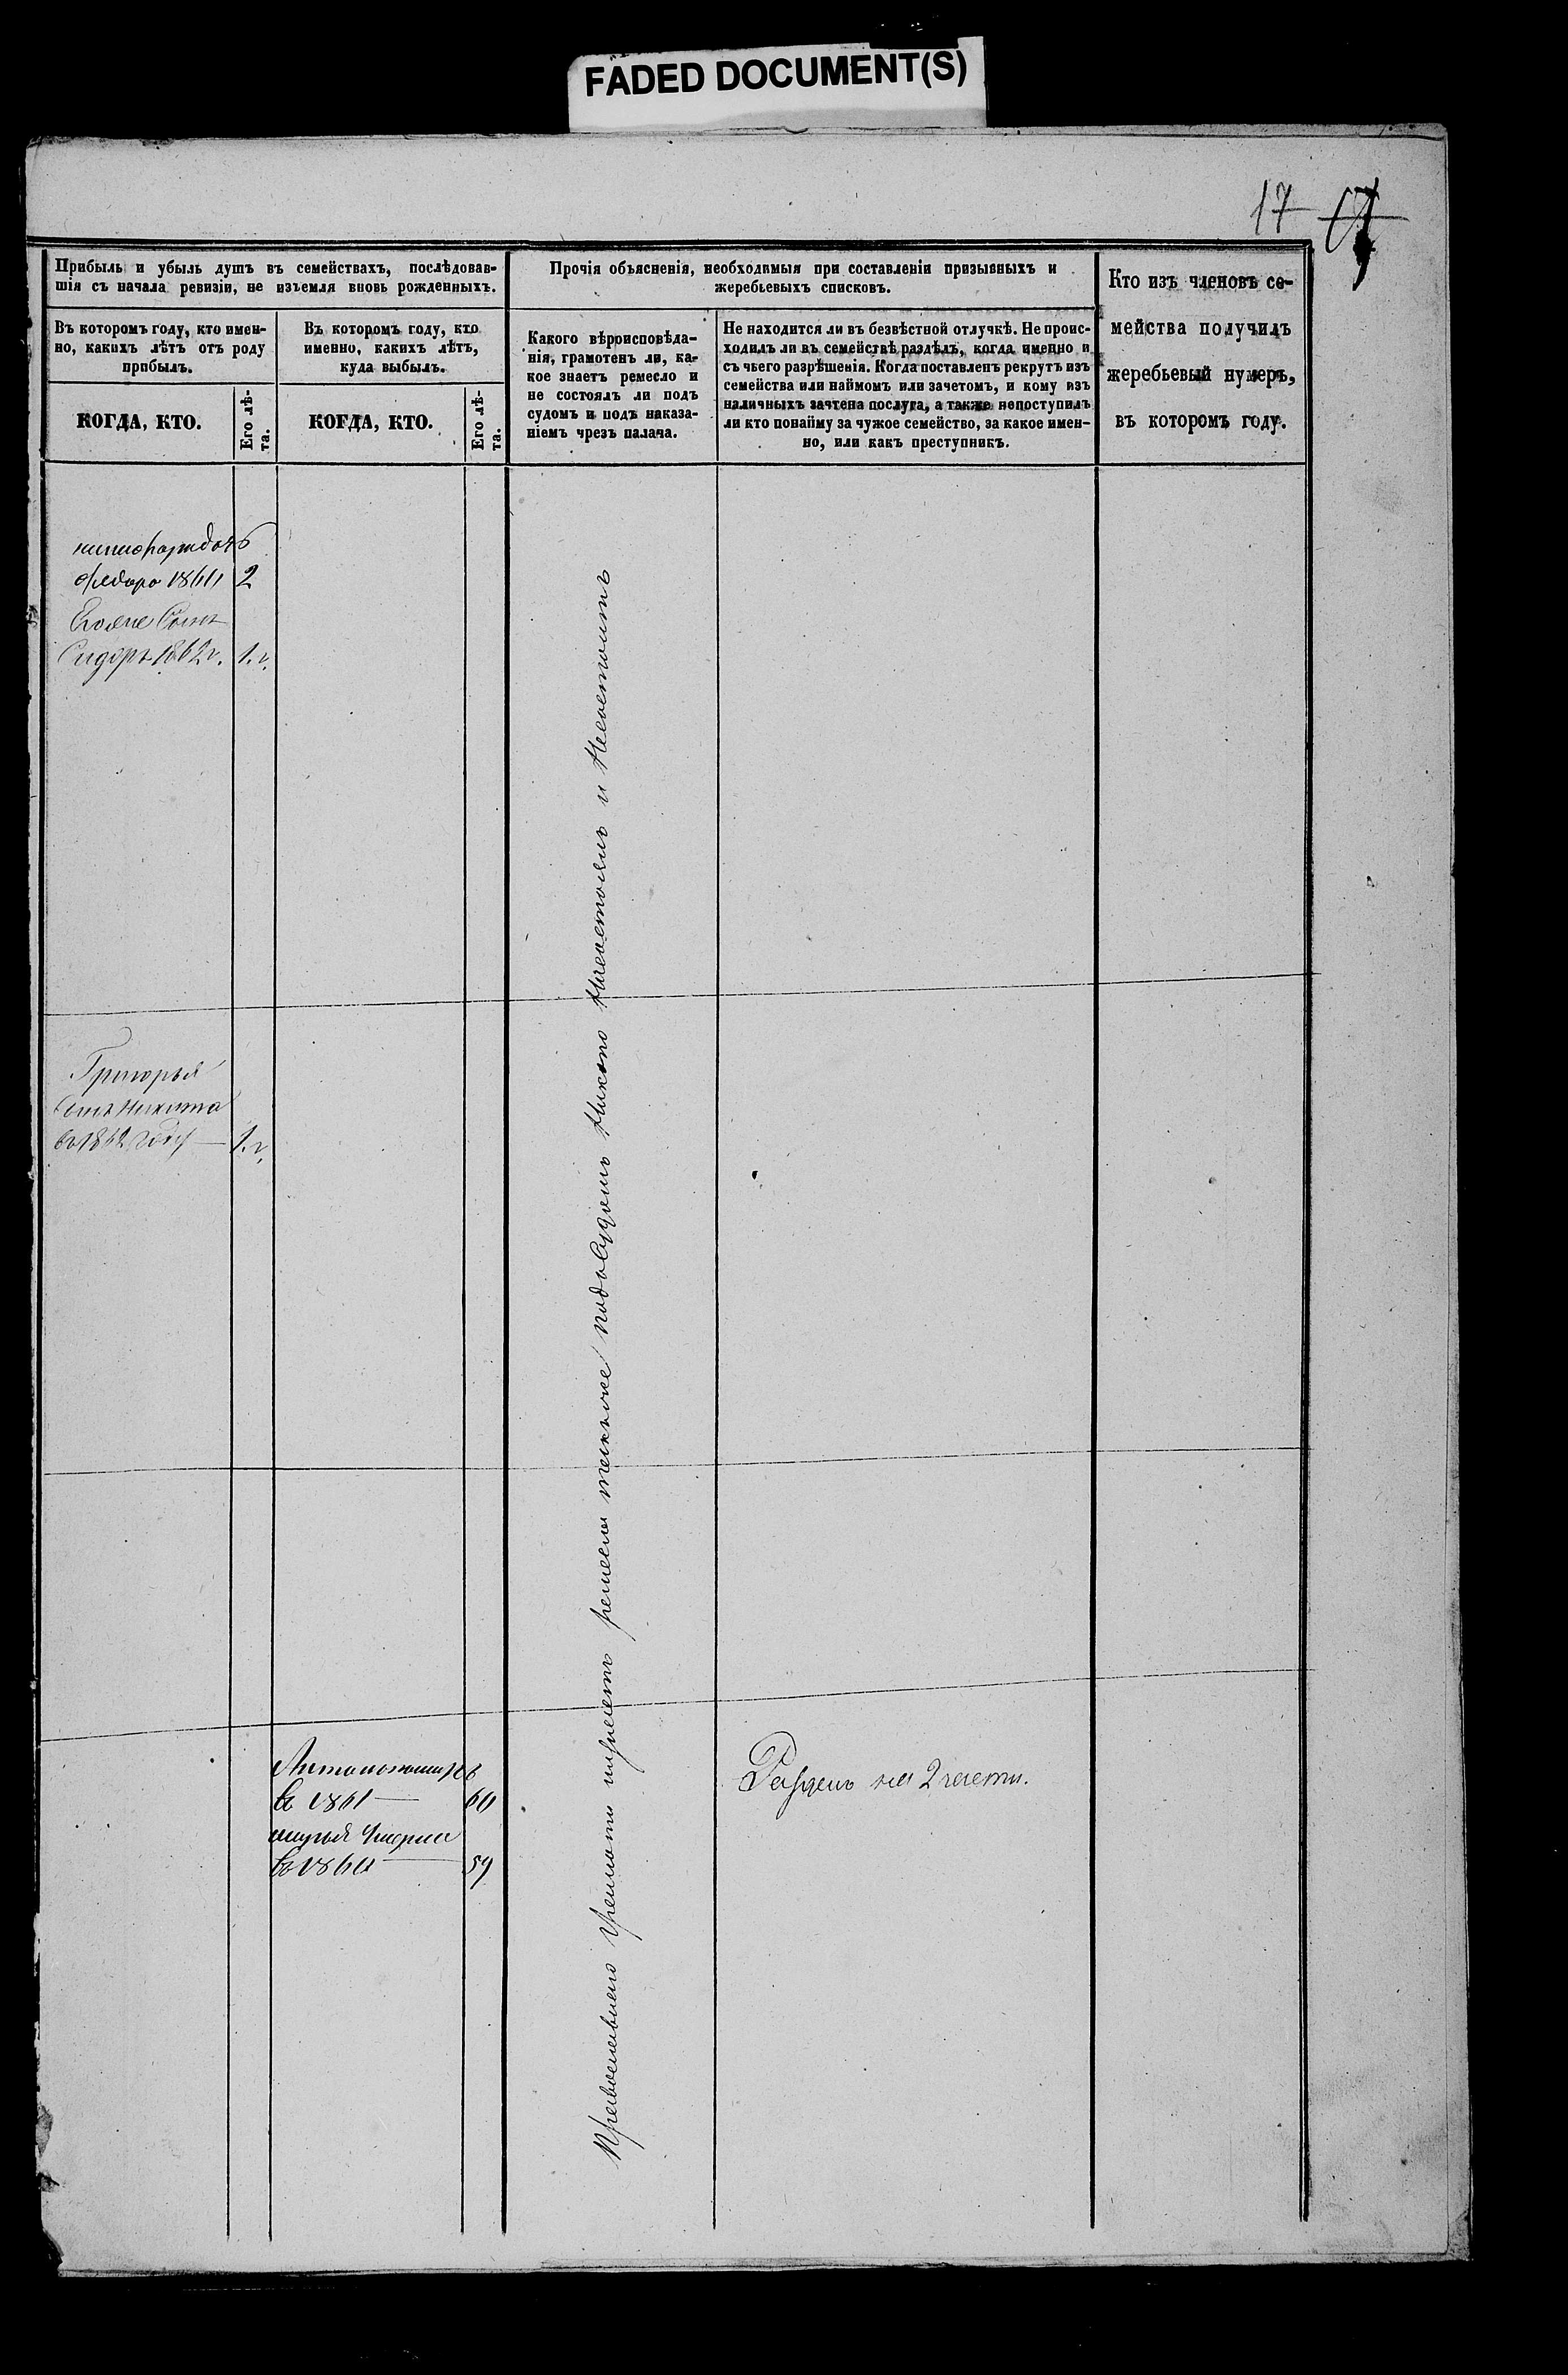 FADED DOCUMENT(S)
17
Прибыль и убыль душъ въ семействахъ, послѣдовав-
шія съ начала ревизіи, не изъемля вновь рожденныхъ.
Въ которомъ году, кто имен-
но, какихъ лѣтъ отъ роду
прибылъ.
КОГДА, КТО.
Его лѣ-
та.
Въ которомъ году, кто
именно, какихъ лѣтъ,
куда выбылъ.
КОГДА, КТО.
Его лѣ-
та.
Прочія объясненія, необходимыя при составленіи призывныхъ и
жеребьевыхъ списковъ.
Какого вѣроисповѣда-
нія, грамотенъ ли, ка-
кое знаетъ ремесло и
не состоялъ ли подъ
судомъ и подъ наказа-
ніемъ чрезъ палача.
Не находится ли въ безвѣстной отлучкѣ. Не проис-
ходилъ ли въ семействѣ раздѣлъ, когда именно и
съ чьего разрѣшенія. Когда поставленъ рекрутъ изъ
семейства или наймомъ или зачетомъ, и кому изъ
наличныхъ зачтена послуга, а также непоступилъ
ли кто понайму за чужое семейство, за какое имен-
но, или какъ преступникъ.
Кто изъ членовъ се-
мейства получилъ
жеребьевый нумеръ,
въ которомъ году.
2
Сынъ
Сидоръ 1862 г. 1. г.
Григорья
Сынъ Никита
въ 1862 году — 1. г.
въ 1861 — 60
въ 1860 — 59
Православнаго грамоти незнаетъ ремесла подъ Судомъ никто несостоялъ и несостоитъ
Раздел на 2 части.